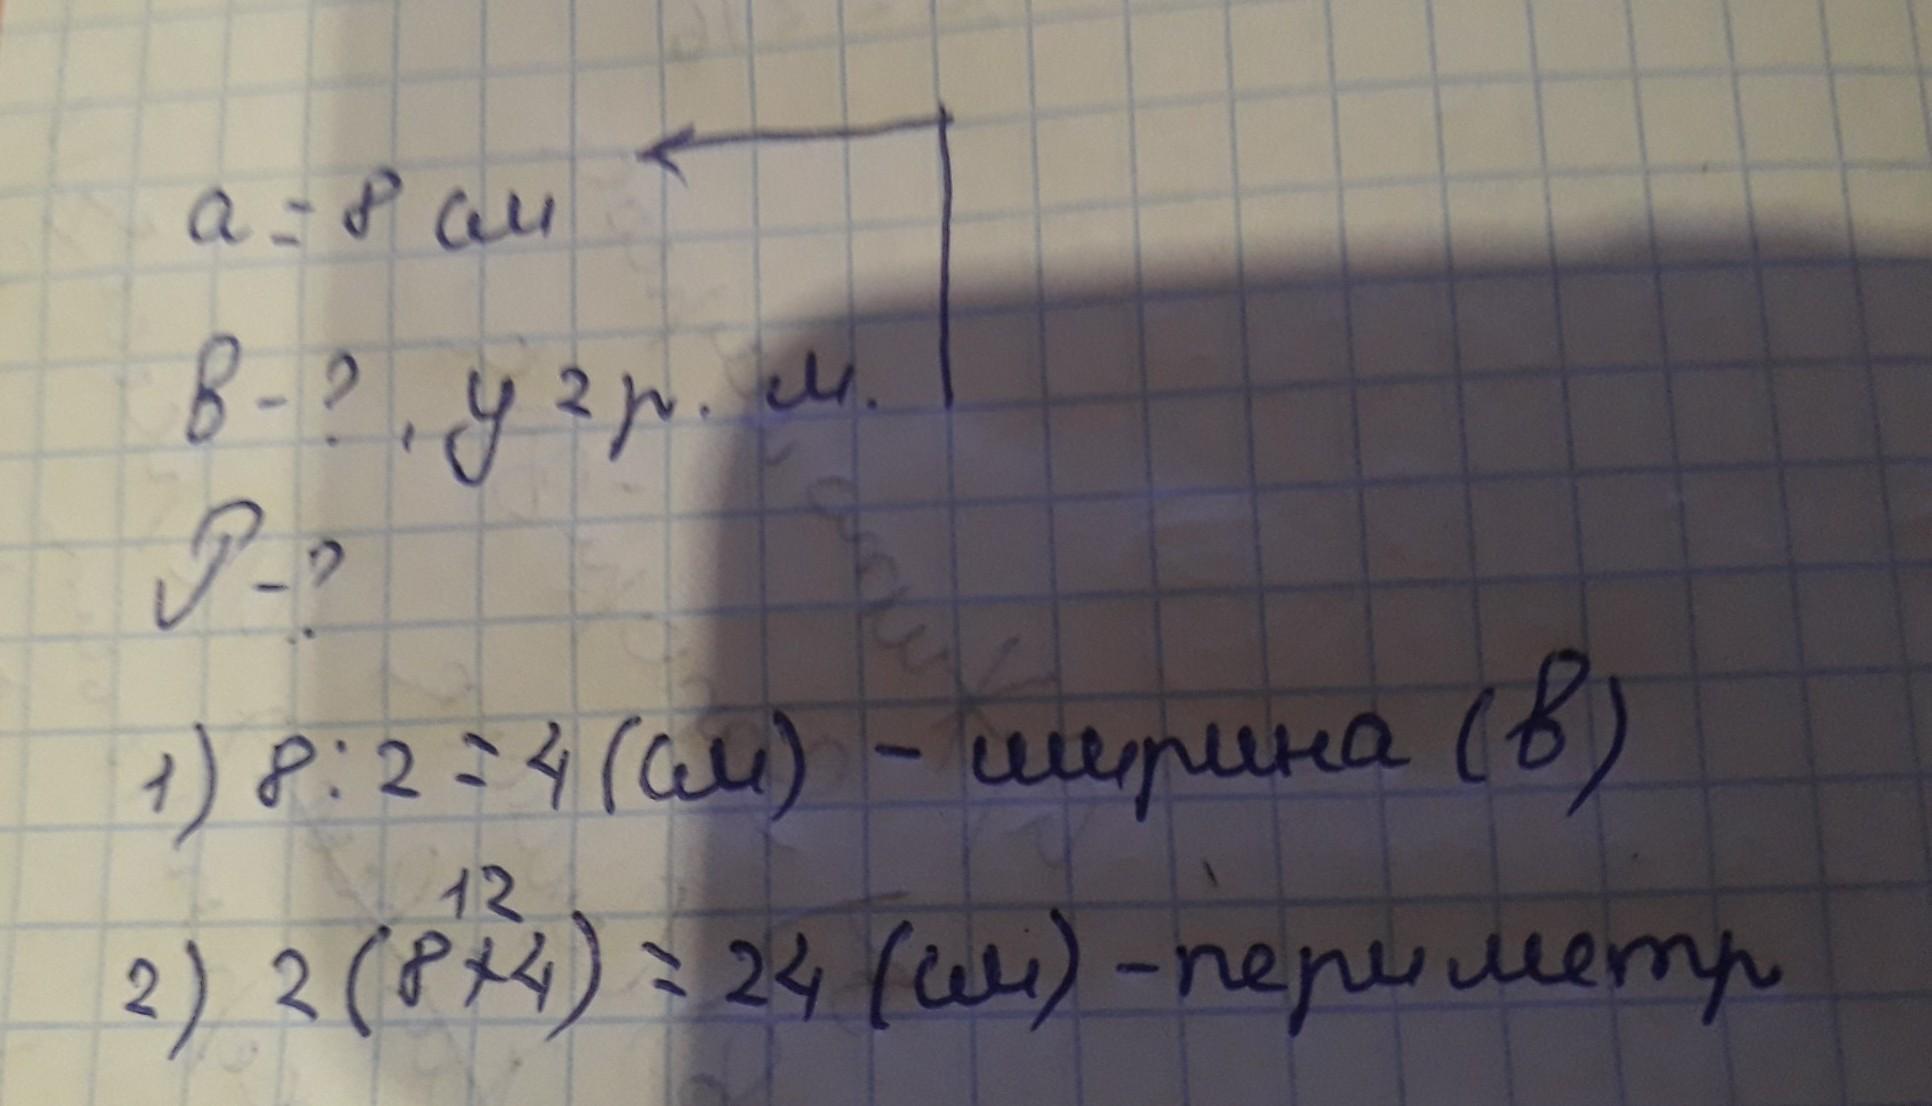 a = 8 см
в - ?, у 2 р. м.
P - ?
1) 8 : 2 = 4 (см) - ширина (в)
12
2) 2 (8 + 4) = 24 (см) - периметр